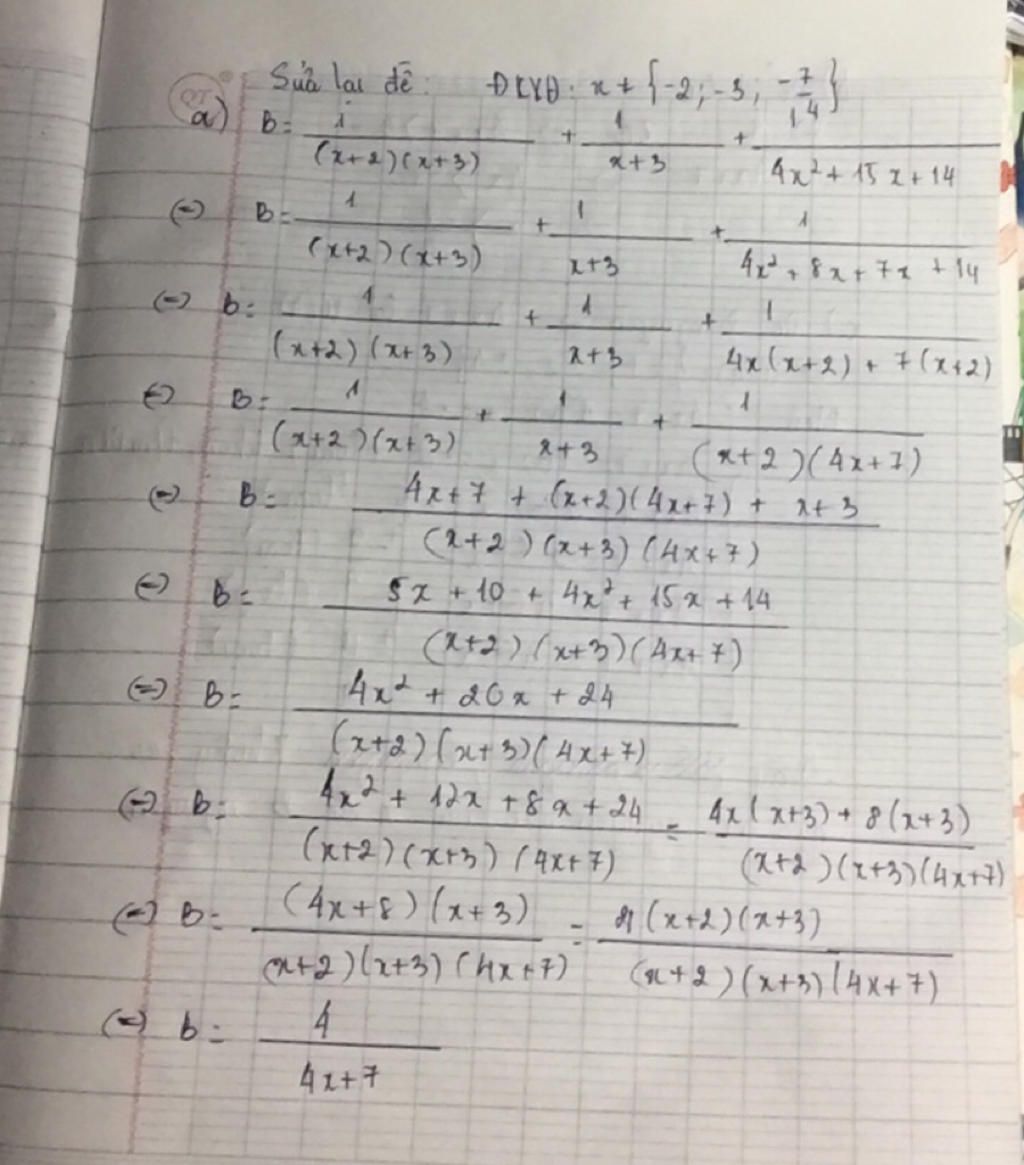 Sửa lại đề: ĐKXĐ: x ≠ {-2; -3; -7/4}
a) B = 1/((x+2)(x+3)) + 1/(x+3) + 1/(4x² + 15x + 14)
(=) B = 1/((x+2)(x+3)) + 1/(x+3) + 1/(4x² + 8x + 7x + 14)
(=) B = 1/((x+2)(x+3)) + 1/(x+3) + 1/(4x(x+2) + 7(x+2))
(=) B = 1/((x+2)(x+3)) + 1/(x+3) + 1/((x+2)(4x+7))
(=) B = (4x+7 + (x+2)(4x+7) + x+3)/((x+2)(x+3)(4x+7))
(=) B = (5x + 10 + 4x² + 15x + 14)/((x+2)(x+3)(4x+7))
(=) B = (4x² + 20x + 24)/((x+2)(x+3)(4x+7))
(=) B = (4x² + 12x + 8x + 24)/((x+2)(x+3)(4x+7)) = (4x(x+3) + 8(x+3))/((x+2)(x+3)(4x+7))
(=) B = ((4x+8)(x+3))/((x+2)(x+3)(4x+7)) = (4(x+2)(x+3))/((x+2)(x+3)(4x+7))
(=) B = 4/(4x+7)